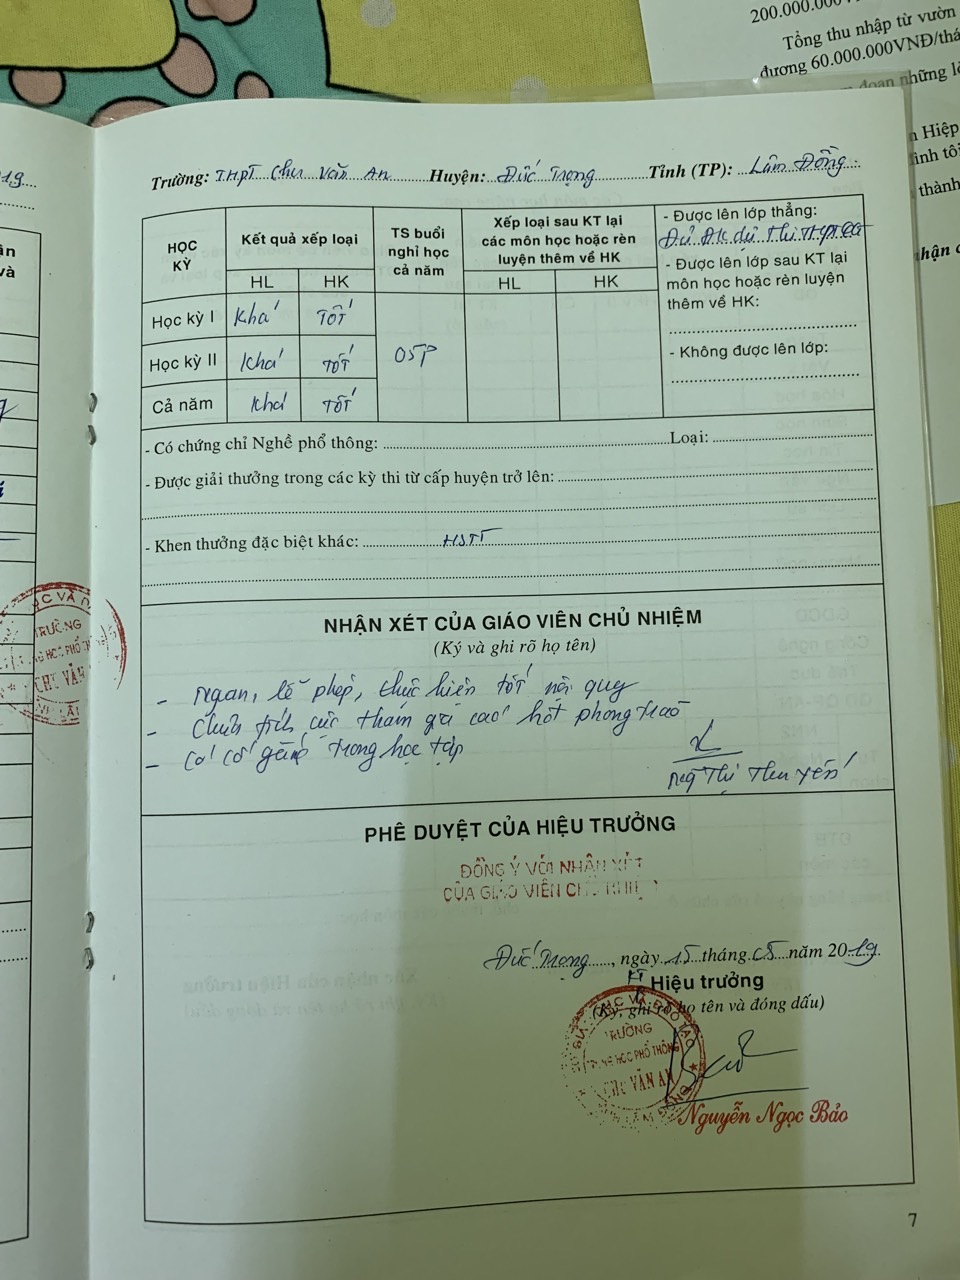 200.000.000
Tổng thu nhập từ vườn
đương 60.000.000VNĐ/thá
đoan những lờ
Hiệp
tình tôi
thành
nhận
Trường: THPT Chu Văn An Huyện: Đức Trọng Tỉnh (TP): Lâm Đồng
HỌC KỲ
Kết quả xếp loại
HL HK
TS buổi nghỉ học cả năm
Xếp loại sau KT lại các môn học hoặc rèn luyện thêm về HK
HL HK
- Được lên lớp thẳng:
Đủ ĐK dự thi THPTQG
- Được lên lớp sau KT lại
môn học hoặc rèn luyện
thêm về HK:
- Không được lên lớp:
Học kỳ I Khá Tốt
Học kỳ II Khá Tốt 05P
Cả năm Khá Tốt
- Có chứng chỉ Nghề phổ thông: Loại:
- Được giải thưởng trong các kỳ thi từ cấp huyện trở lên:
- Khen thưởng đặc biệt khác: HSTT
NHẬN XÉT CỦA GIÁO VIÊN CHỦ NHIỆM
(Ký và ghi rõ họ tên)
- Ngoan, lễ phép, thực hiện tốt nội quy
- Chưa tích cực tham gia các hđ phong trào
- Có cố gắng trong học tập
Ng Thị Thu Yến
PHÊ DUYỆT CỦA HIỆU TRƯỞNG
ĐỒNG Ý VỚI NHẬN XÉT
CỦA GIÁO VIÊN CHỦ NHIỆM
Đức Trọng, ngày 15 tháng 05 năm 2019
Hiệu trưởng
(Ký, ghi rõ họ tên và đóng dấu)
TRƯỜNG
TRUNG HỌC PHỔ THÔNG
CHU VĂN AN
Nguyễn Ngọc Bảo
7